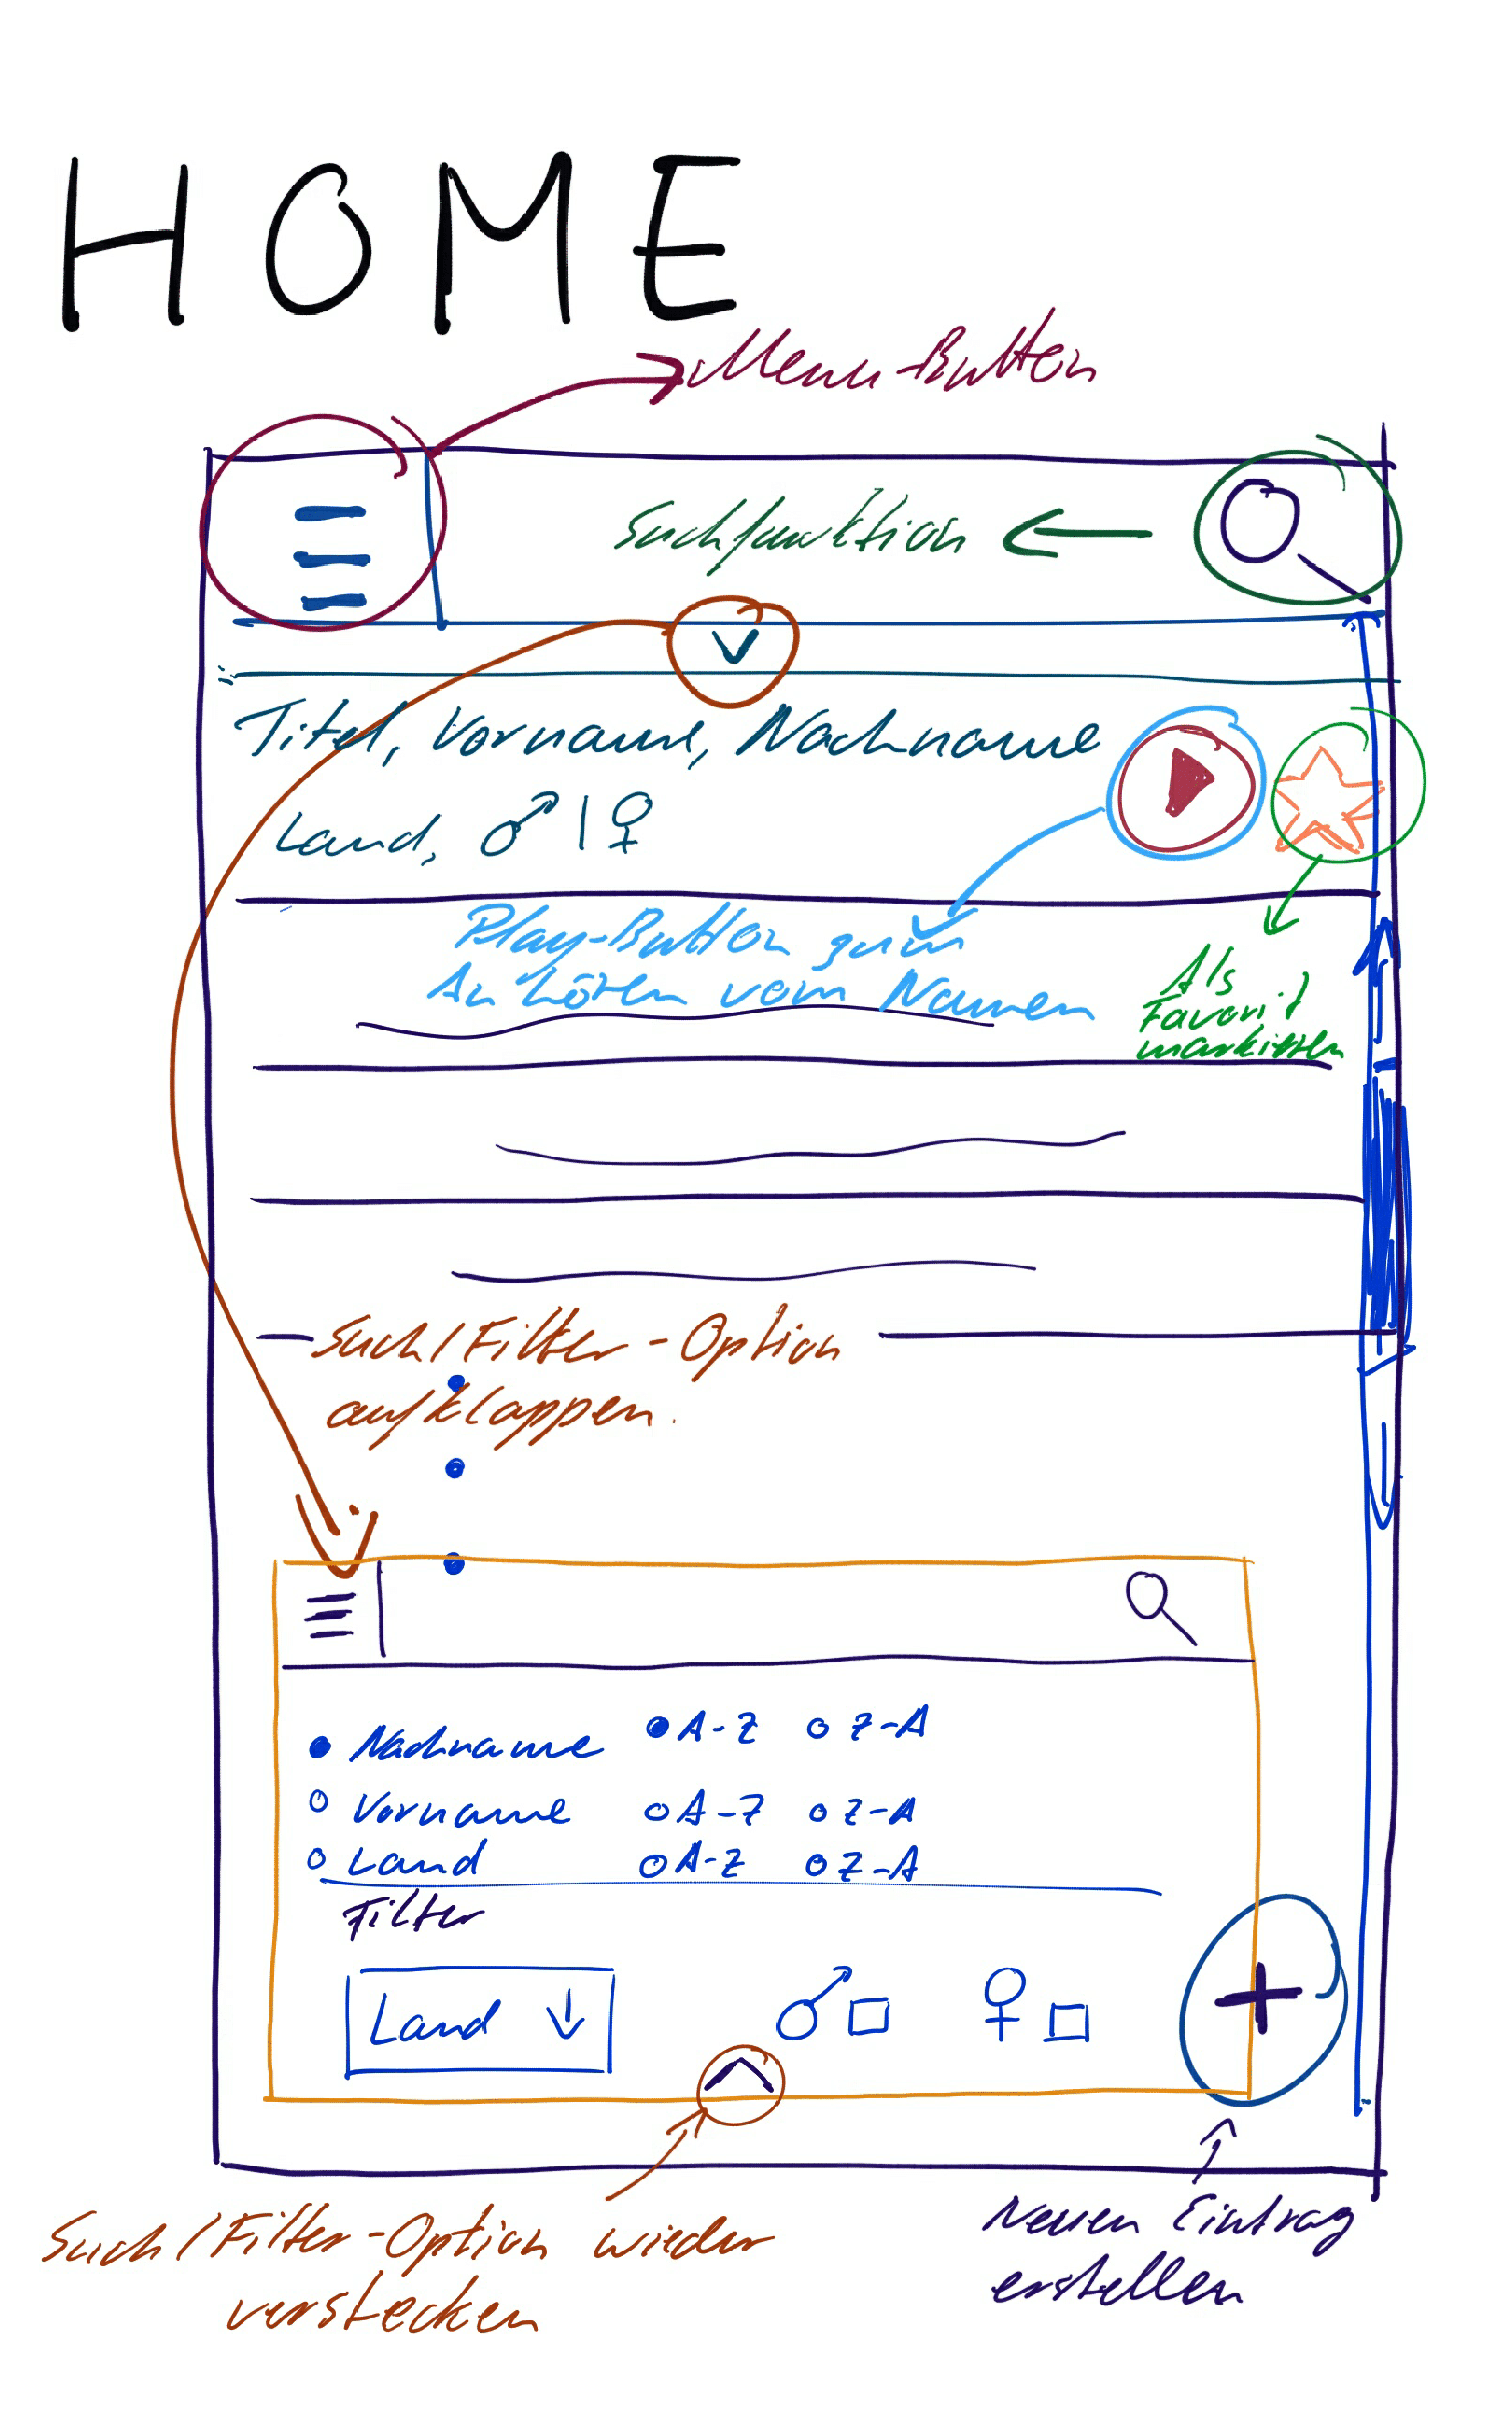 HOME
Menu-Button
Suchfunktion
Titel, Vorname, Nachname
Land, ♂ | ♀
Play-Button zum
Anhören vom Namen
Als
Favorit
markieren
Such/Filter-Option
aufklappen.
Nachname A-Z Z-A
Vorname A-Z Z-A
Land A-Z Z-A
Filter
Land ↓ ♂ ♀
+
Such/Filter-Option wieder
verstecken
Neuen Eintrag
erstellen